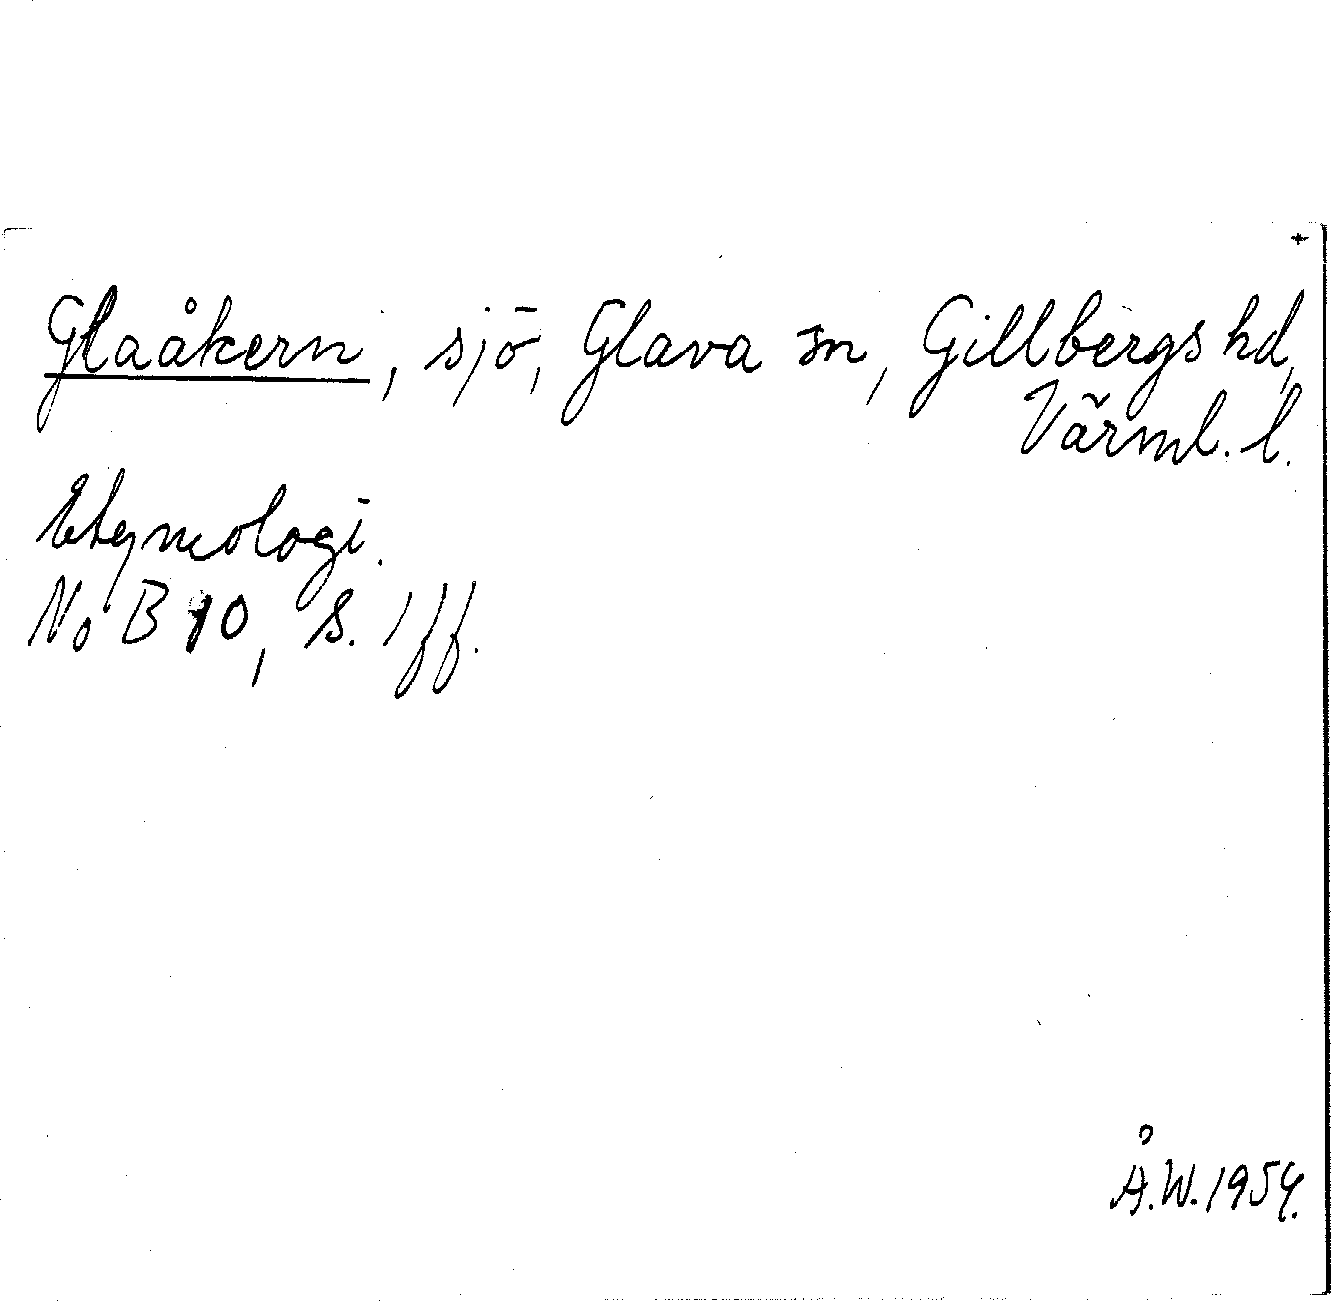 Glaåkern, sjö, Glava sn, Gillbergs hd,
Värml. l.
Etymologi.
NoB 10, s. 1 ff.
Å.W. 1954.